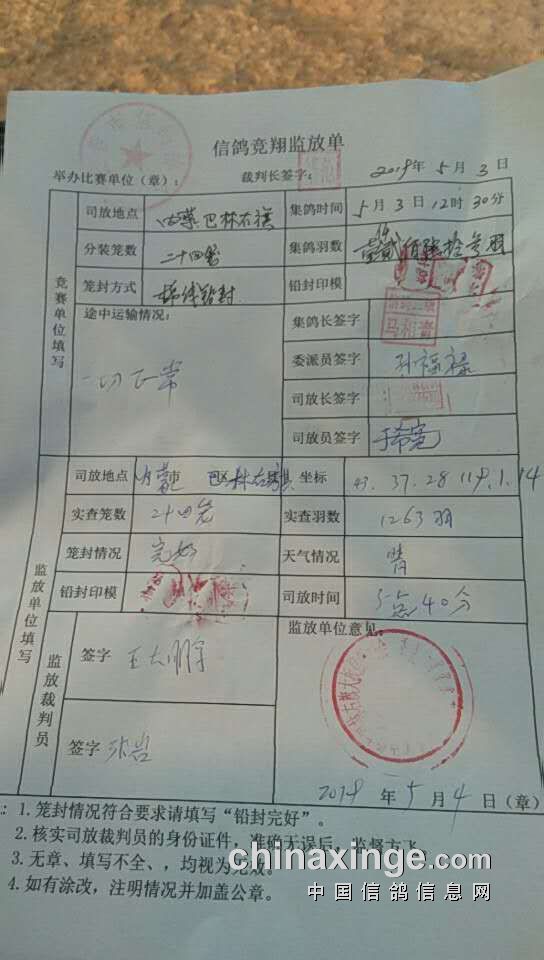 信鸽竞翔监放单
举办比赛单位（章）： 裁判长签字： 2018年5月3日
竞赛单位填写
司放地点 内蒙巴林右旗 集鸽时间 5月3日12时30分
分装笼数 二十四笼 集鸽羽数
笼封方式 铅封 铅封印模
途中运输情况： 一切正常
集鸽长签字 马相青
委派员签字 孙福禄
司放长签字
司放员签字 于希宽
监放单位填写
司放地点 内蒙市 巴区林右旗 坐标 43.37.28 119.1.14
实查笼数 二十四笼 实查羽数 1263羽
笼封情况 完好 天气情况 晴
铅封印模 司放时间 5点40分
监放裁判员
签字 王大鹏
签字 张岩
监放单位意见：
2018年5月4日（章）
：1.笼封情况符合要求请填写“铅封完好”。
2.核实司放裁判员的身份证件，准确无误后，监督方飞。
3.无章、填写不全、，均视为无效。
4.如有涂改，注明情况并加盖公章。
chinaxinge.com
中国信鸽信息网